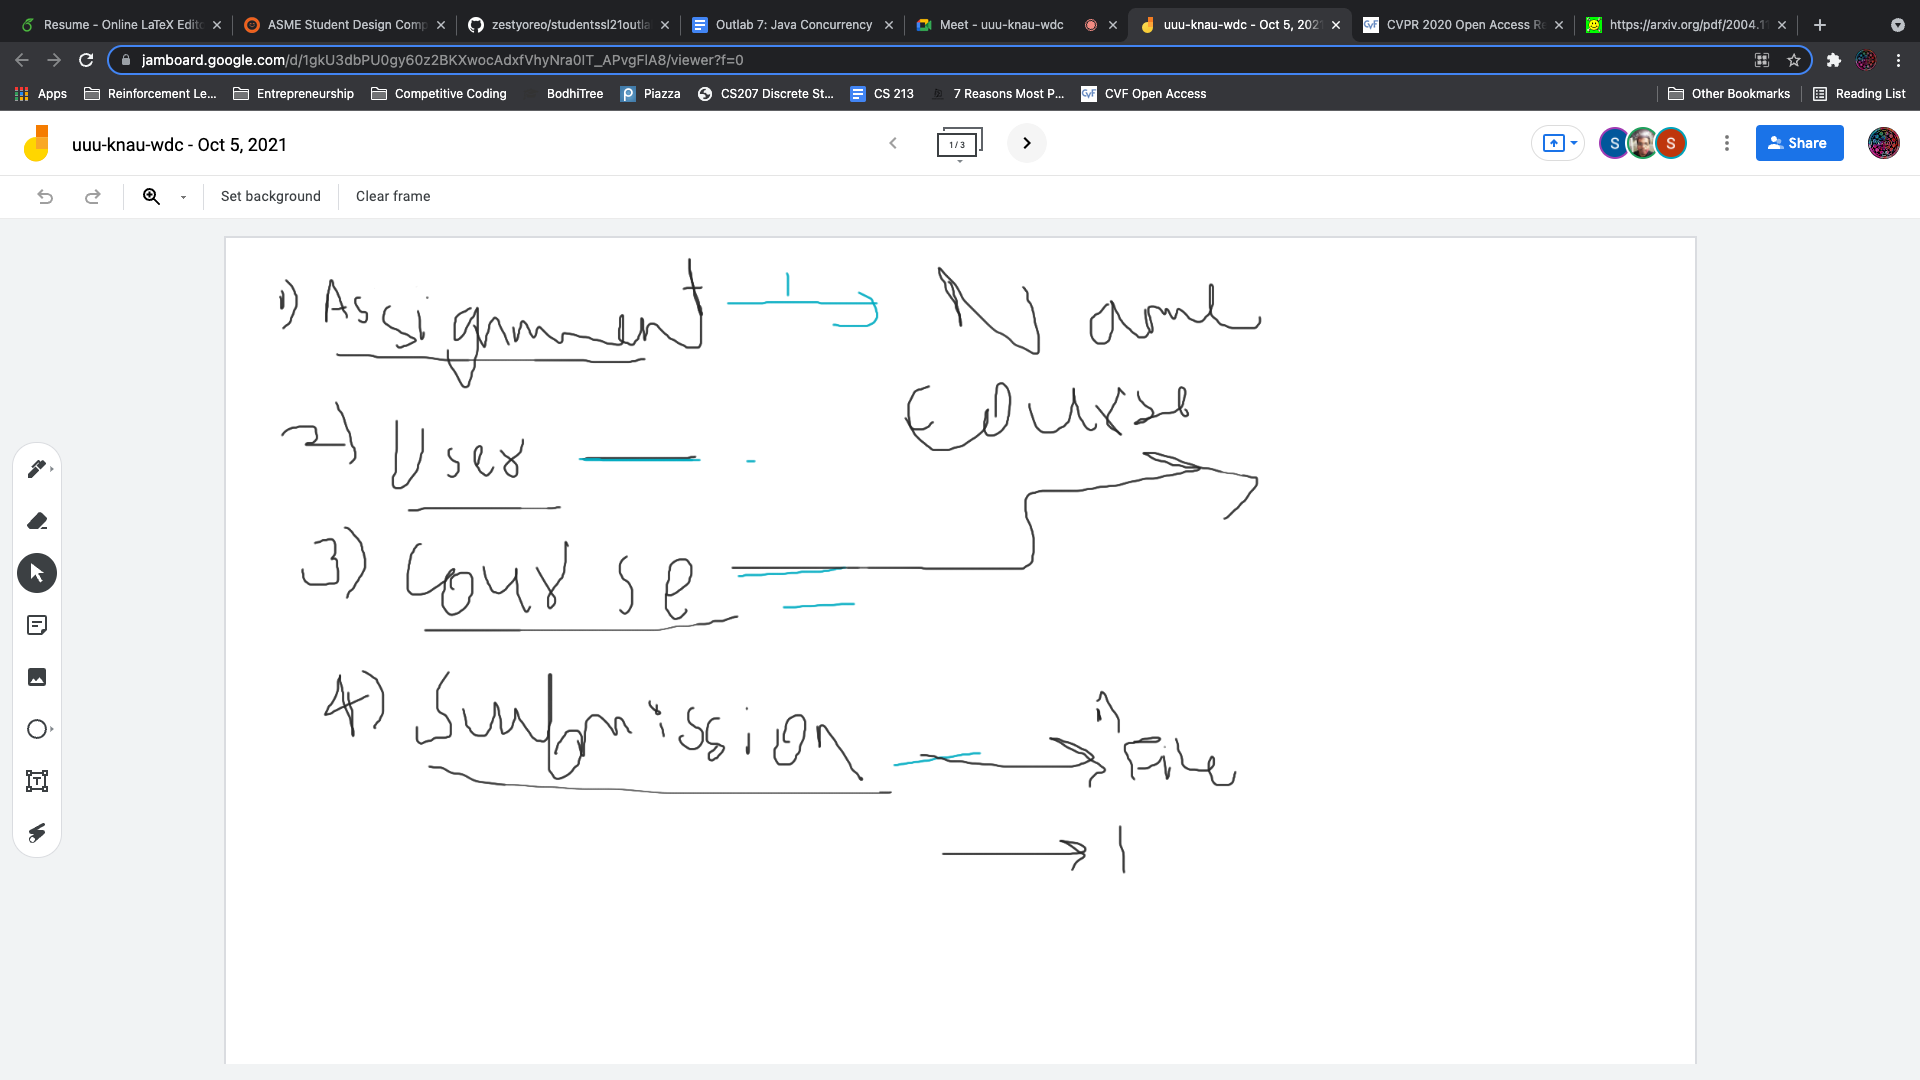 Resume - Online LaTeX Edit
ASME Student Design Comp
zestyoreo/studentssl21outla
Outlab 7: Java Concurrency
Meet - uuu-knau-wdc
uuu-knau-wdc - Oct 5, 2021
CVPR 2020 Open Access Re
https://arxiv.org/pdf/2004.11
jamboard.google.com/d/1gkU3dbPU0gy60z2BKXwocAdxfVhyNra0IT_APvgFlA8/viewer?f=0
Apps
Reinforcement Le...
Entrepreneurship
Competitive Coding
BodhiTree
Piazza
CS207 Discrete St...
CS 213
7 Reasons Most P...
CVF Open Access
Other Bookmarks
Reading List
uuu-knau-wdc - Oct 5, 2021
1 / 3
S
S
Share
Set background
Clear frame
1) Assignment
Name
Course
2) User
3) Course
4) Submission
File
1